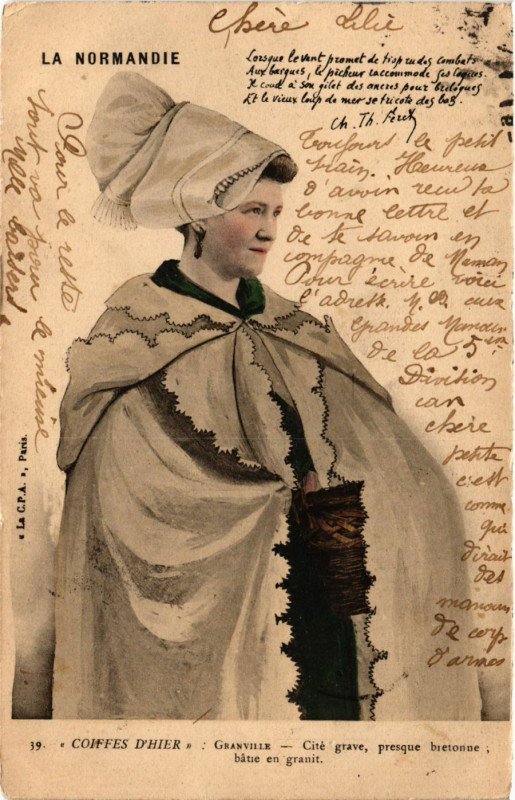 Chère Lilie
LA NORMANDIE
Lorsque le vent promet de trop rudes combats
Aux barques, le pêcheur raccommode ses loques.
Il coud à son gilet des ancres pour breloques
Et le vieux loup de mer se tricote des bas.
Ch. Th. Féret
Toujours le petit
train. Heureux
d'avoir recu ta
bonne lettre et
de te savoir en
compagnie de Maman
Pour écrire voici
l'adresse. aux
Grandes Manœuv
de la 5 ien
Division
car
chère
petite
c'est
comme
qui
dirait
des
manœuv
de corp
d'armes
Pour le reste
tout va pour le mieux
Mille baisers
« La C.P.A. », Paris.
39. « COIFFES D'HIER » : GRANVILLE — Cité grave, presque bretonne ;
bâtie en granit.